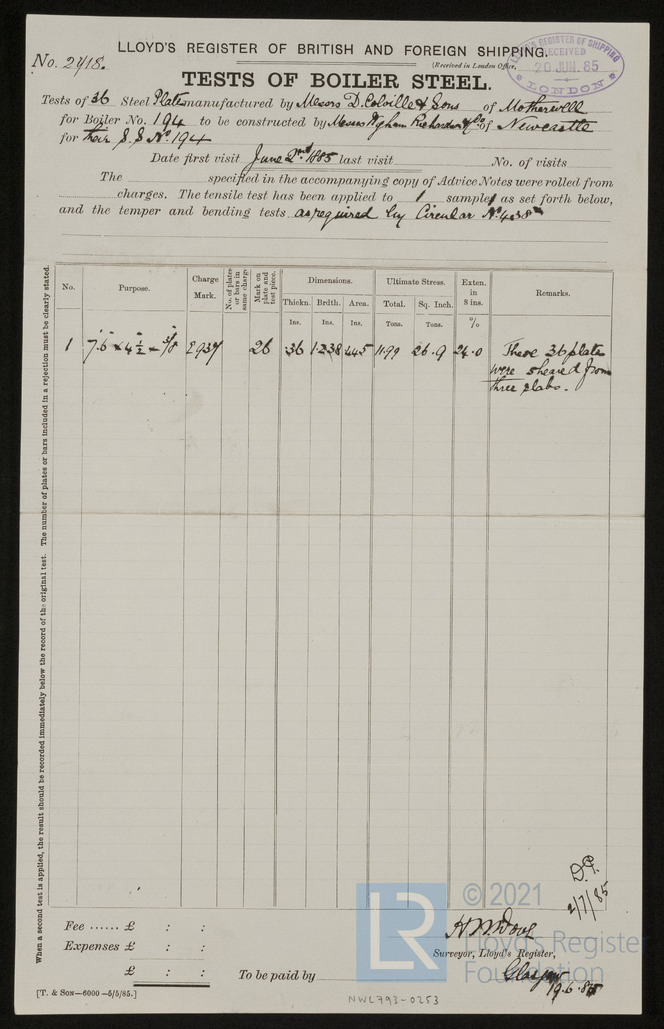 LLOYD'S REGISTER OF BRITISH AND FOREIGN SHIPPING.
No. 2418.
(Received in London Office,
LLOYD'S REGISTER OF SHIPPING
RECEIVED
20 JUN. 85
LONDON
TESTS OF BOILER STEEL.
Tests of 36 Steel Plates manufactured by Messrs D. Colville & Sons of Motherwell
for Boiler No. 194 to be constructed by Messrs Wigham Richardson & Co of Newcastle
for their S.S No. 194
Date first visit June 2nd 1885 last visit No. of visits
The specified in the accompanying copy of Advice Notes were rolled from
charges. The tensile test has been applied to 1 sample, as set forth below,
and the temper and bending tests as required by Circular No.
No. Purpose. Charge Mark. No. of plates or bars in same charge Mark on plate and test piece. Dimensions. Ultimate Stress. Exten. in 8 ins. Remarks.
Thickn. Brdth. Area. Total. Sq. Inch.
Ins. Ins. Ins. Tons. Tons. %
1 7.6 × 4½ – 3/8 2937 26 36 1.238 445 11.99 26.9 24.0 These 36 plates
were sheared from
three slabs.
When a second test is applied, the result should be recorded immediately below the record of the original test. The number of plates or bars included in a rejection must be clearly stated.
D.P.
2/7/85
© 2021
LR
Lloyd's Register
Foundation
Fee ...... £ : :
Expenses £ : :
£ : :
Surveyor, Lloyd's Register,
To be paid by
Glasgow
19.6.85
[T. & SON—6000—5/5/85.]
NWL793-0253